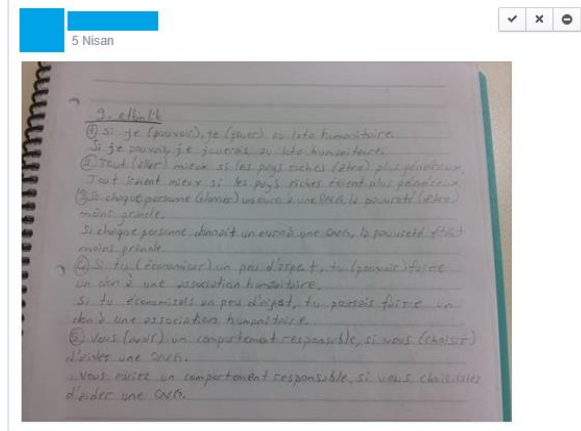 5 Nisan
9. etkinlik
① Si je (pouvoir), je (jouer) au loto humanitaire.
Si je pouvais, je jouerais au loto humanitaire.
② Tout (aller) mieux si les pays riches (être) plus généreux.
Tout iraient mieux si les pays riches étaient plus généreux.
③ Si chaque personne (donner) un euro à une ONG, la pauvreté (être)
moins grande.
Si chaque personne donnait un euro à une ONG, la pauvreté était
moins grande.
④ Si tu (économiser) un peu d'argent, tu (pouvoir) faire
un don à une association humanitaire.
Si tu économisais un peu d'argent, tu pourrais faire un
don à une association humanitaire.
⑤ Vous (avoir) un comportement responsable, si vous (choisir)
d'aider une ONG.
Vous auriez un comportement responsable, si vous
d'aider une ONG.